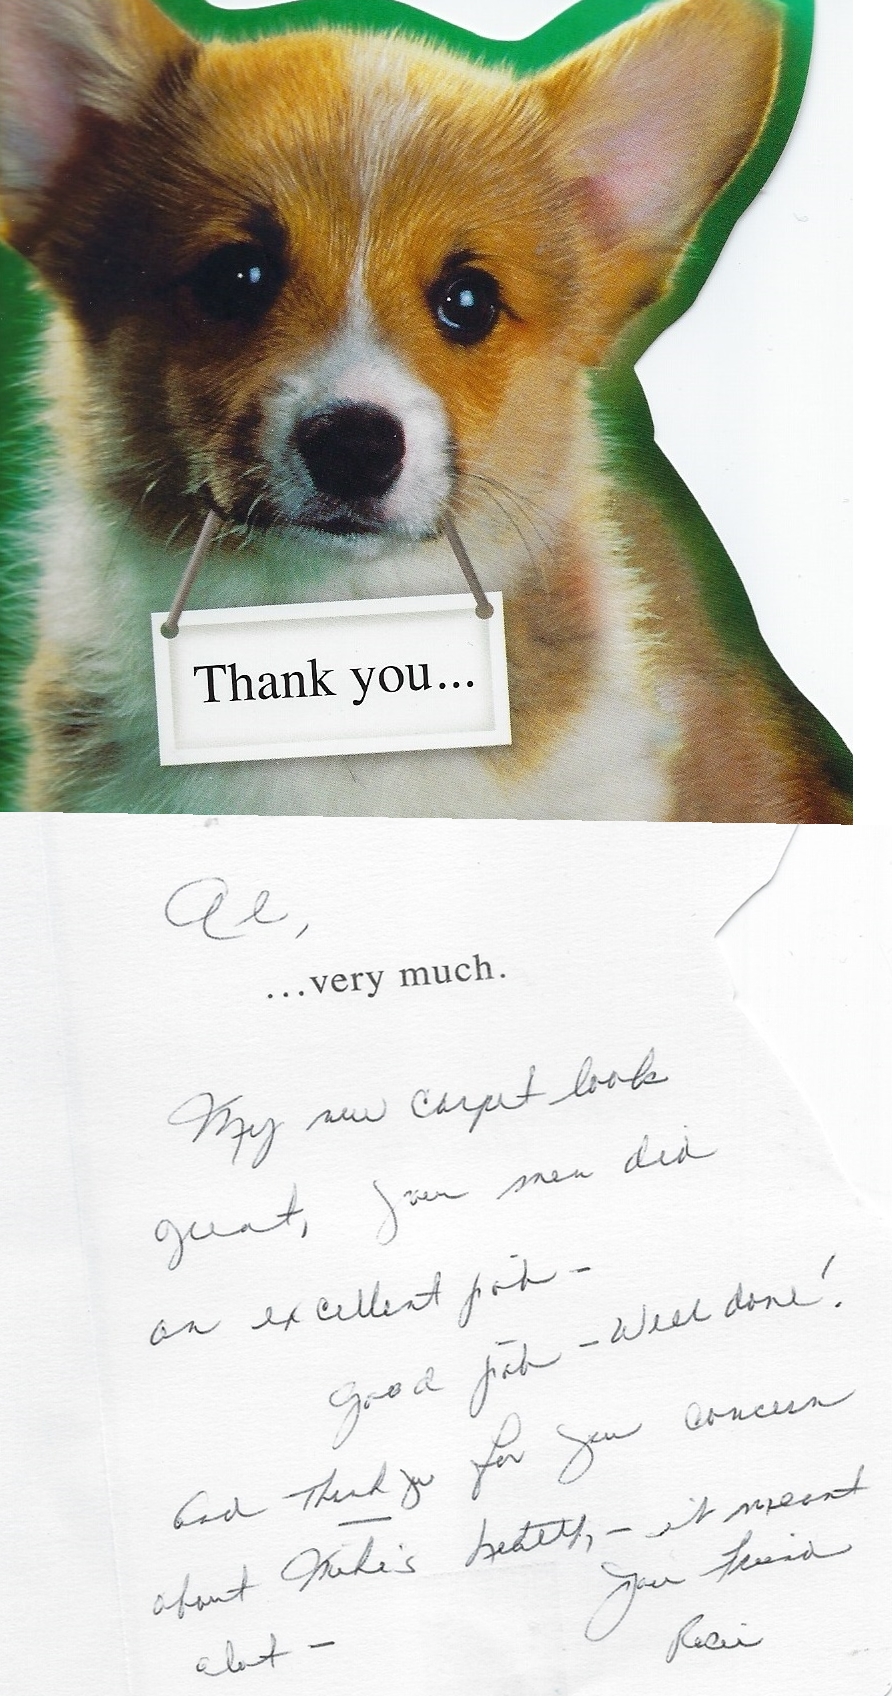 Thank you...
Al,
...very much.
My new carpet look
great, your men did
an excellent job -
Good job - Well done!
And Thank you for your concern
about Mike's health, - it meant
alot -
Your friend